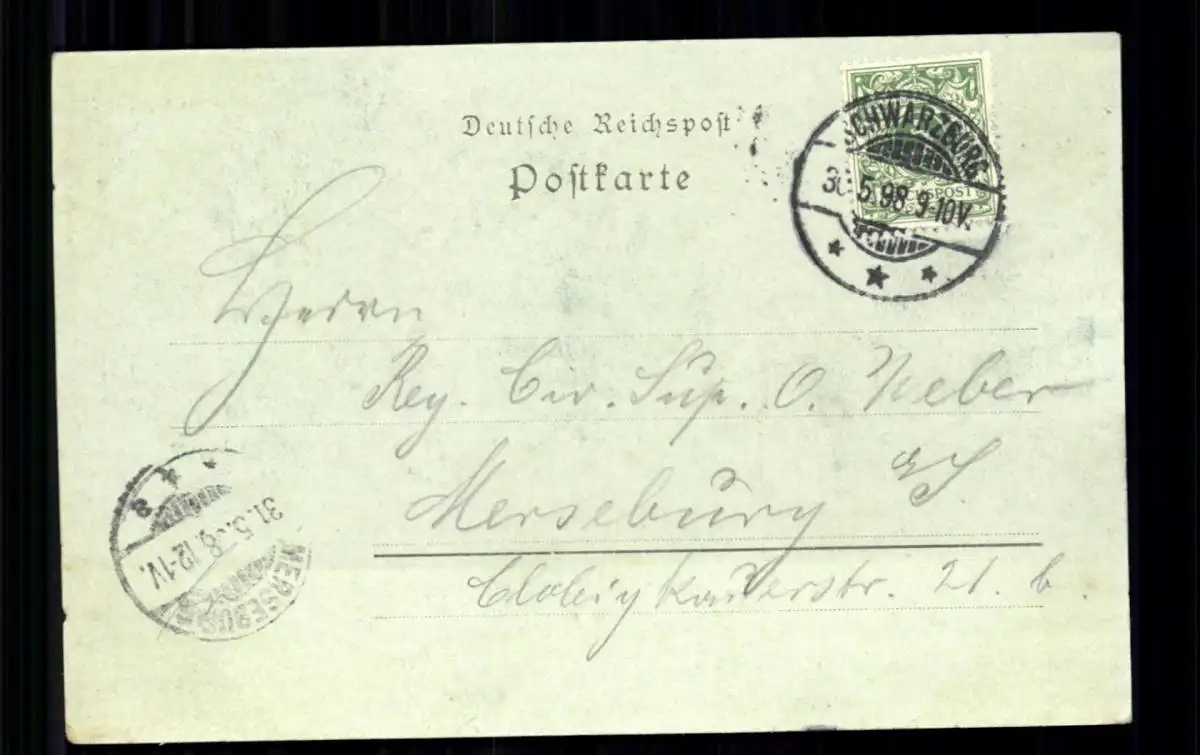 Deutsche Reichspost
Postkarte
SCHWARZBURG
5.98 9-10V.
REICHSPOST
Herrn
Reg. Civ. Sup. O. Weber
Merseburg
a/S
21 b.
31.5. 8. 12-1V.
MERSEBURG